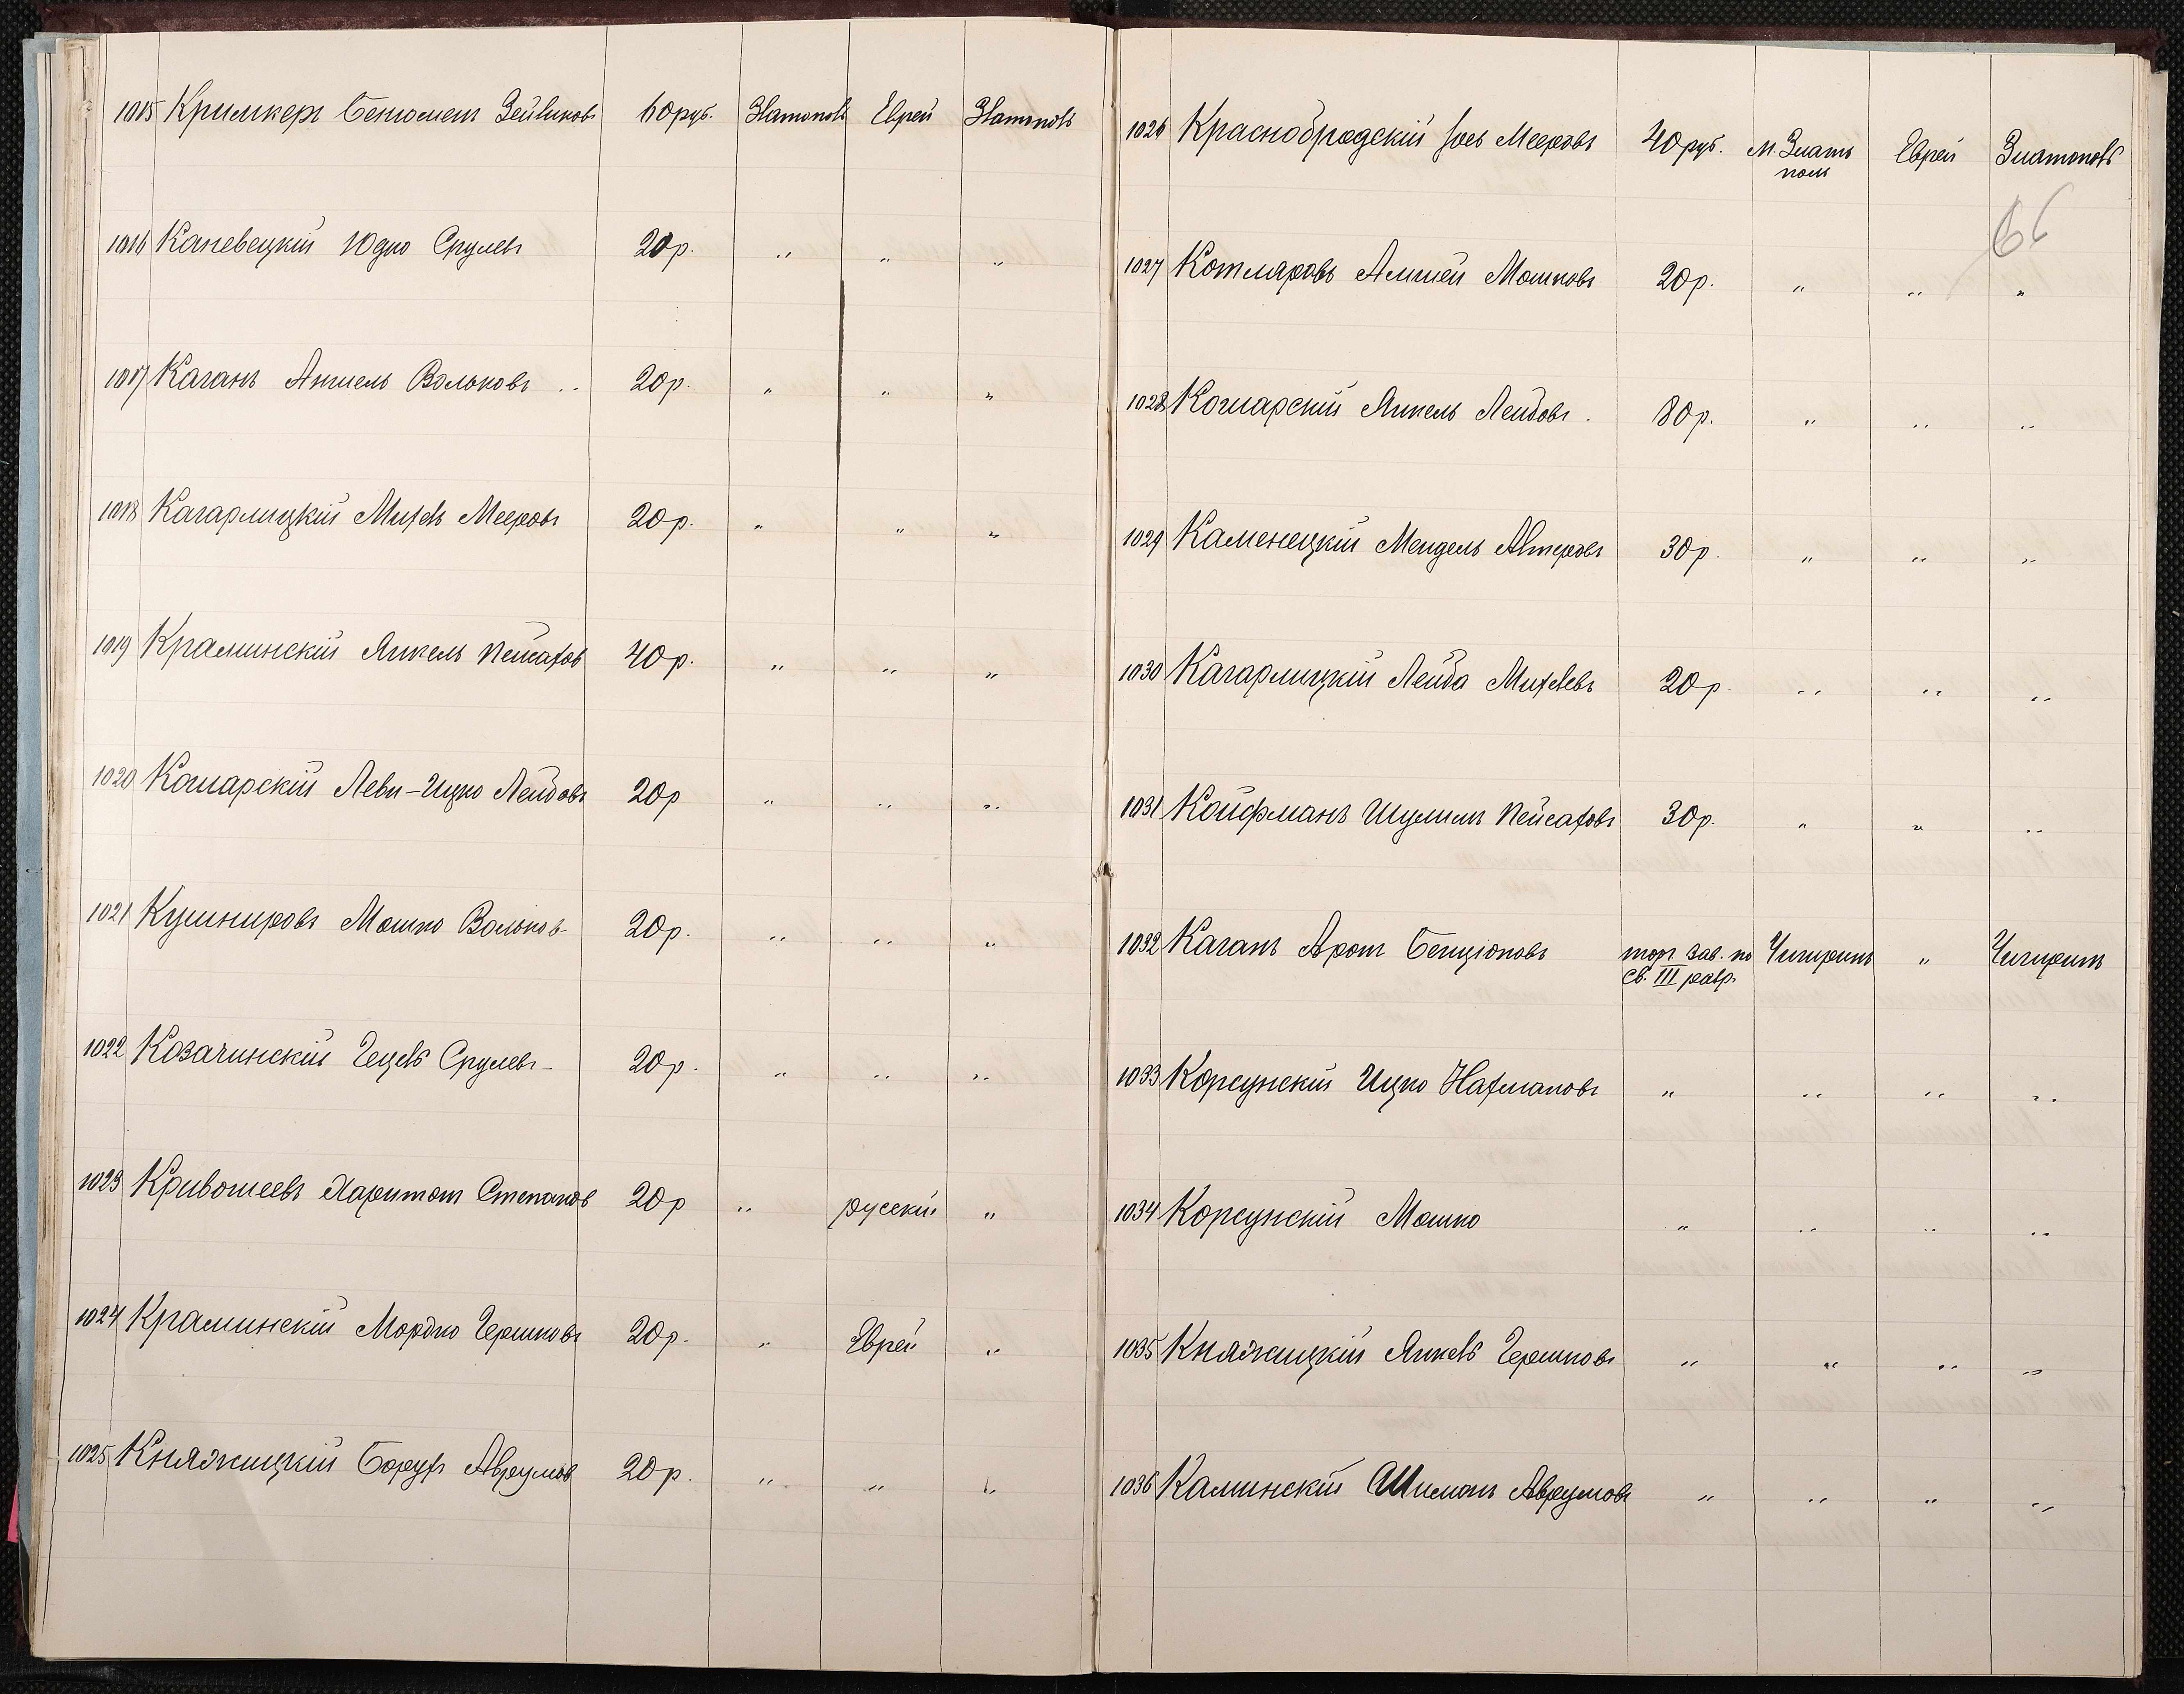 1015 Кримкеръ Беньоменъ Зейликовъ 60 руб. Златополь Еврей Златополь
1016 Каневецкій Юдко Срулевъ 20 р. " " "
1017 Каганъ Аншель Вольковъ 20 р. " " "
1018 Кагарлицкій Михель Мееровъ 20 р. " " "
1019 Краминскій Янкель Пейсаховъ 40 р. " " "
1020 Кошарскій Леви-Ицко Лейбовъ 20 р " " "
1021 Кушнировъ Мошко Вольковъ 20 р. " " "
1022 Козачинскій Гецель Срулевъ 20 р. " " "
1023 Кривошеевъ Харитонъ Степановъ 20 р " русскій "
1024 Краминскій Мордко Гершковъ 20 р. " Еврей "
1025 Княжицкій Борухъ Аврумовъ 20 р. " " "
1026 Краснобродскій Іось Мееровъ 40 руб. м. Злато Еврей Златополь
поль
66
1027 Котляровъ Мошковъ 20 р. " " "
1028 Кошарскій Янкель Лейбовъ 80 р. " " "
1029 Каменецкій Мендель Алтеровъ 30 р. " " "
1030 Кагарлицкій Лейба Михелевъ 20 р. " " "
1031 Койфманъ Шулимъ Пейсаховъ 30 р. " " "
1032 Каганъ Аронъ Бенціоновъ торг. зав. по Чигиринъ " Чигиринъ
св. III разр.
1033 Корсунскій Ицко Нахмановъ " " " "
1034 Корсунскій Мошко " " " "
1035 Княжицкій Янкель Гершковъ " " " "
1036 Каминскій Шимонъ Аврумовъ " " " "